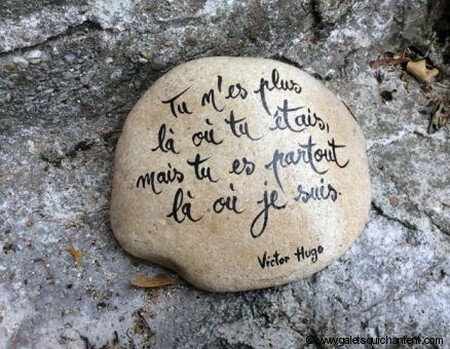 Tu n'es plus
là où tu étais,
mais tu es partout
là où je suis.
Victor Hugo
© www.galetsquichantent.com